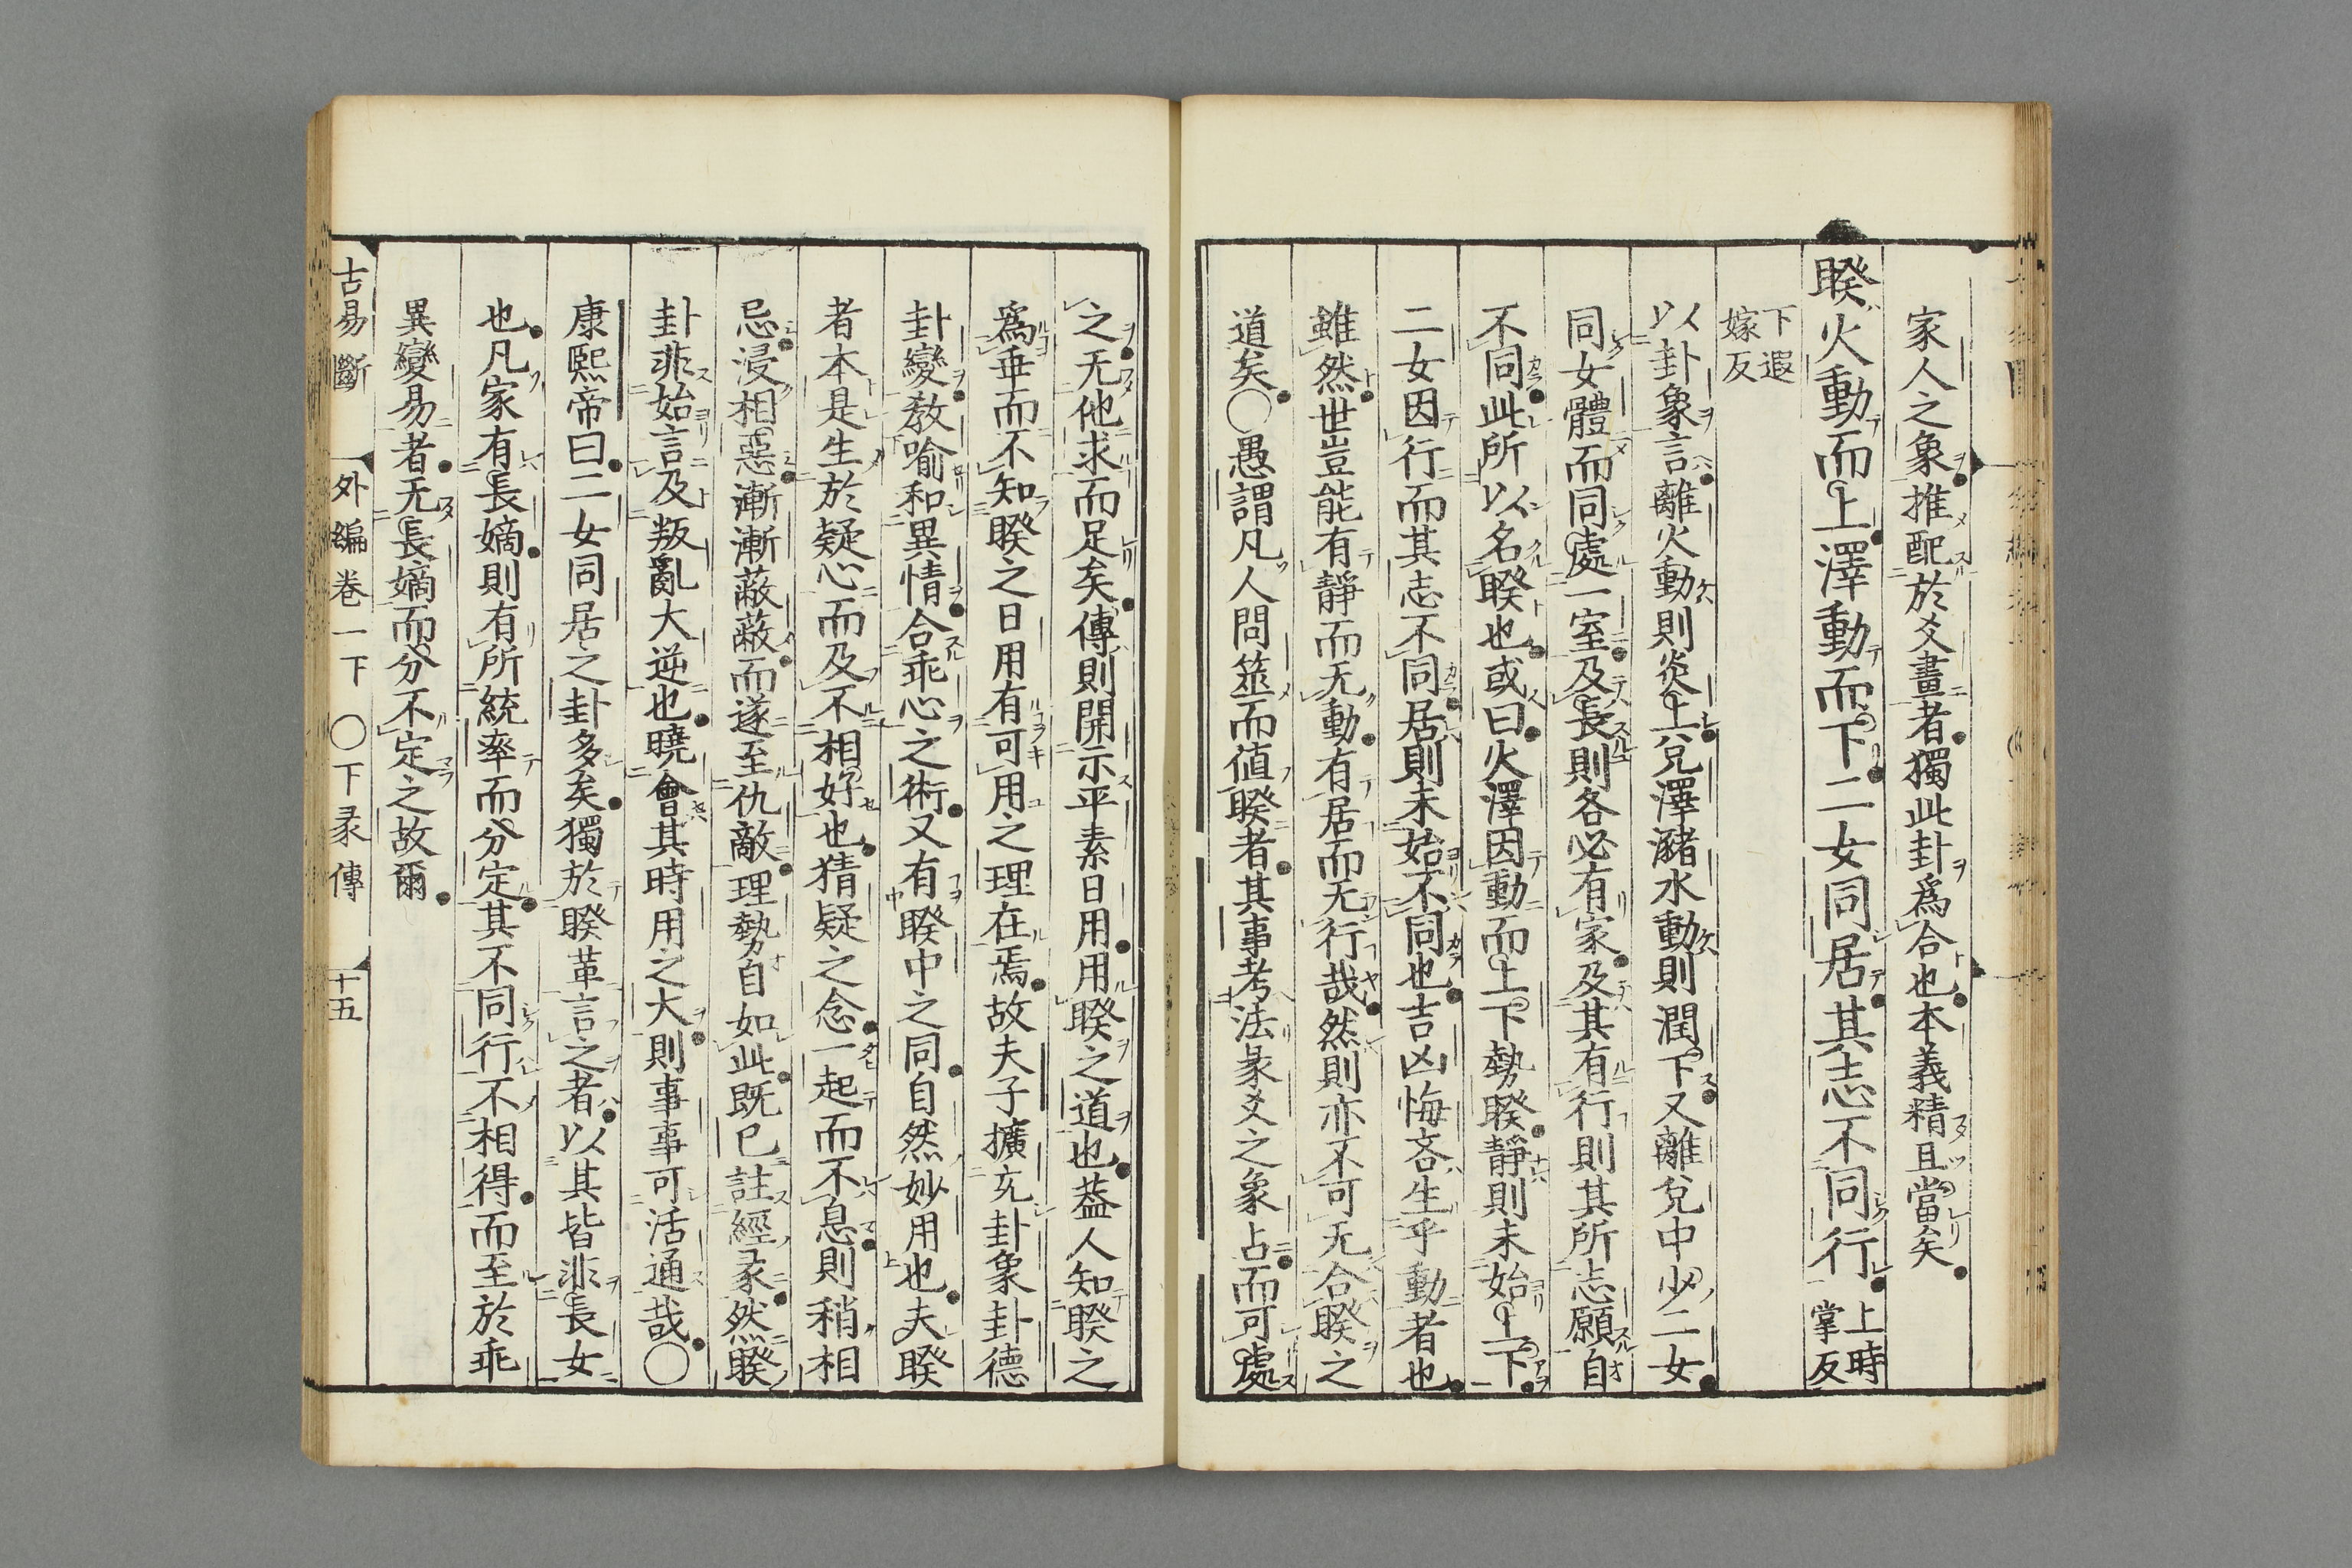 家人之象推配於爻畫者獨此卦爲合也本義精且當矣
睽火動而上澤動而下二女同居其志不同行上時掌反
下遐嫁反
以卦象言離火動則炎上兌澤瀦水動則潤下又離兌中少二女
同女體而同處一室及長則各必有家及其有行則其所志願自
不同此所以名睽也或曰火澤因動而上下勢睽靜則未始上下
二女因行而其志不同居則未始不同也吉凶悔吝生乎動者也
雖然世豈能有靜而无動有居而无行哉然則亦不可无合睽之
道矣〇愚謂凡人問筮而値睽者其事考法彖爻之象占而可處
之无他求而足矣傳則開示平素日用用睽之道也葢人知睽之
爲乖而不知睽之日用有可用之理在焉故夫子擴充卦象卦德
卦變敎喻和異情合乖心之術又有睽中之同自然妙用也夫睽
者本是生於疑心而及不相好也猜疑之念一起而不息則稍相
忌浸相惡漸漸蔽蔽而遂至仇敵理勢自如此既已註經彖然睽
卦非始言及叛亂大逆也曉會其時用之大則事事可活通哉〇
康熙帝曰二女同居之卦多矣獨於睽革言之者以其皆非長女
也凡家有長嫡則有所統率而分定其不同行不相得而至於乖
異變易者无長嫡而分不定之故爾
古易斷 外編卷一下 〇下彖傳 十五